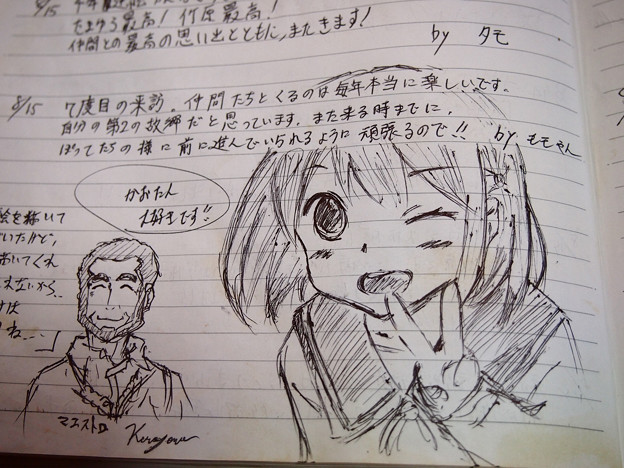 8/15
たまゆら最高！竹原最高！
仲間との最高の思い出とともに、またきます！
by タモ
8/15
7度目の来訪。仲間たちとくるのは毎年本当に楽しいです。
自分の第2の故郷だと思っています。また来る時までに、
ぽってたちの様に前に進んでいられるように頑張るので!!
by ももやん
かおたん
大好きです!!
絵を描いて
いたけど、
おいてくれ
えないから..
すは
ね...」
マエストロ